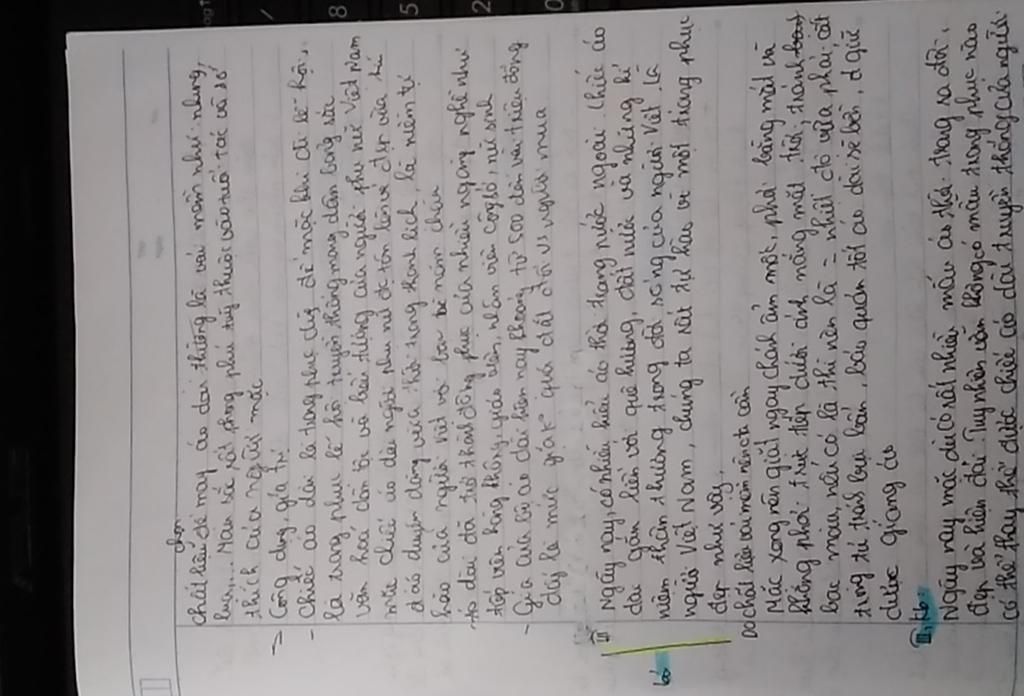 chọn
chất liệu để may áo dài thường là vải mềm như nhung,
lụa,... Màu sắc rất phong phú tùy thuộc vào tuổi tác và sở
thích của người mặc
→ Công dụng, giá trị
- Chiếc áo dài là trang phục để mặc khi đi lễ hội,
là trang phục lễ hội truyền thống mang đậm bản sắc
văn hoá dân tộc và là người phụ nữ Việt Nam
chiếc áo dài người phụ nữ đc tôn lên vẻ đẹp vừa
duyên dáng vừa thời trang thanh lịch, là niềm tự
hào của người Việt với bạn bè năm châu
- Áo dài đã trở thành đồng phục của nhiều ngành nghề như
tiếp viên hàng không, giáo viên, nhân viên công sở, nữ sinh
- Giá của bộ áo dài hiện nay khoảng từ 500 đến vài triệu đồng
đây là mức giá k quá đắt đối với người mua
III Ngày nay, có nhiều kiểu áo thời trang nước ngoài. Chiếc áo
dài gắn liền với quê hương, đất nước và những kỉ
niệm thân thương trong đời sống của người Việt. Là
người Việt Nam, chúng ta rất tự hào vì một trang phục
đẹp như vậy.
bỏ
Do chất liệu vải mềm nên ta cần
Mặc xong nên giặt ngay tránh ẩm mốc, phơi bằng mặt và
không phơi trực tiếp dưới ánh nắng mặt trời, tránh
bạc màu, nếu có là thì nên là = nhiệt độ vừa phải, cất
trong tủ tránh bụi bẩn, bảo quản tốt áo dài sẽ bền, giữ
được giáng áo
III, kb:
Ngày nay mặc dù có rất nhiều mẫu áo thời trang ra đời,
đẹp và hiện đại. Tuy nhiên vẫn không có mẫu trang phục nào
có thể thay thế được chiếc áo dài truyền thống của người
8
5
2
0